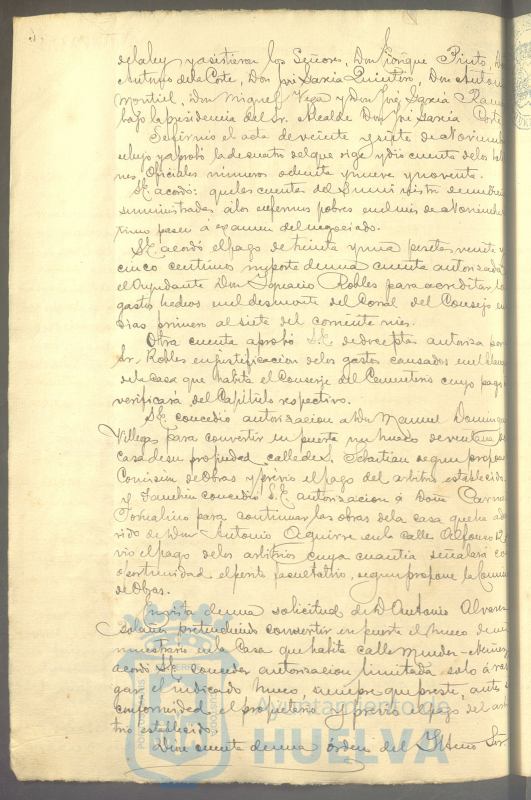 de la ley y asistieron los Señores, Don Enrique Pinto, D
Antonio de la Corte, Don José Garcia Quintero, Don Antonio
Montiel, Don Miguel Vega y Don José Garcia Ramo
bajo la presidencia del Sr. Alcalde Don José Garcia
Se firmó el acta de veinte y siete de Noviembre
se leyó y aprobó la de cuatro del que rige y dio cuenta de los Boleti
nes Oficiales números ochenta y nueve y noventa.
S.E. acordó: que las cuentas del suministro de
suministradas á los enfermos pobres en el mes de Noviembre
timo pasen á examen del negociado.
S.E. acordó el pago de treinta y una pesetas veinte y
cinco centimos importe de una cuenta autorizada
el Ayudante Don Ignacio Robles para acreditar los
gastos hechos en el desmonte del Corral del Consejo en
dias primero al siete del corriente mes.
Otra cuenta aprobó S.E. de doce ptas autoriza por
Sr. Robles en justificacion de los gastos causados en el
de la casa que habita el Conserje del Cementerio cuyo pago
verificará del Capítulo respectivo.
S.E. concedió autorizacion á Don Manuel Dominguez
Villegas para convertir en puerta un hueco de ventana de
casa de su propiedad calle de S. Sebastian segun propone
Comision de Obras y prévio el pago del arbitrio establecido.
Y tambien concedió S.E. autorizacion á Dom
Tornalino para continuar las obras de la casa que ha ad
rido de Don Antonio Aguirre en la calle Alfonso 12
vio el pago de los arbitrios cuya cuantia señalará con
oportunidad el perito facultativo, segun propone la Comision
de Obras.
En vista de una solicitud de D. Antonio Alvarez
pretendiendo convertir en puerta el hueco de un
en la Casa que habita calle Mendez-Nuñez
acordó S.E. conceder autorizacion limitada solo á
gar el indicado hueco, siempre que preste, antes
conformidad el propietario y prévio el pago del arbi
trio establecido.
Dióse cuenta de una órden del Iltmo Sor.
Ayuntamiento de
HUELVA